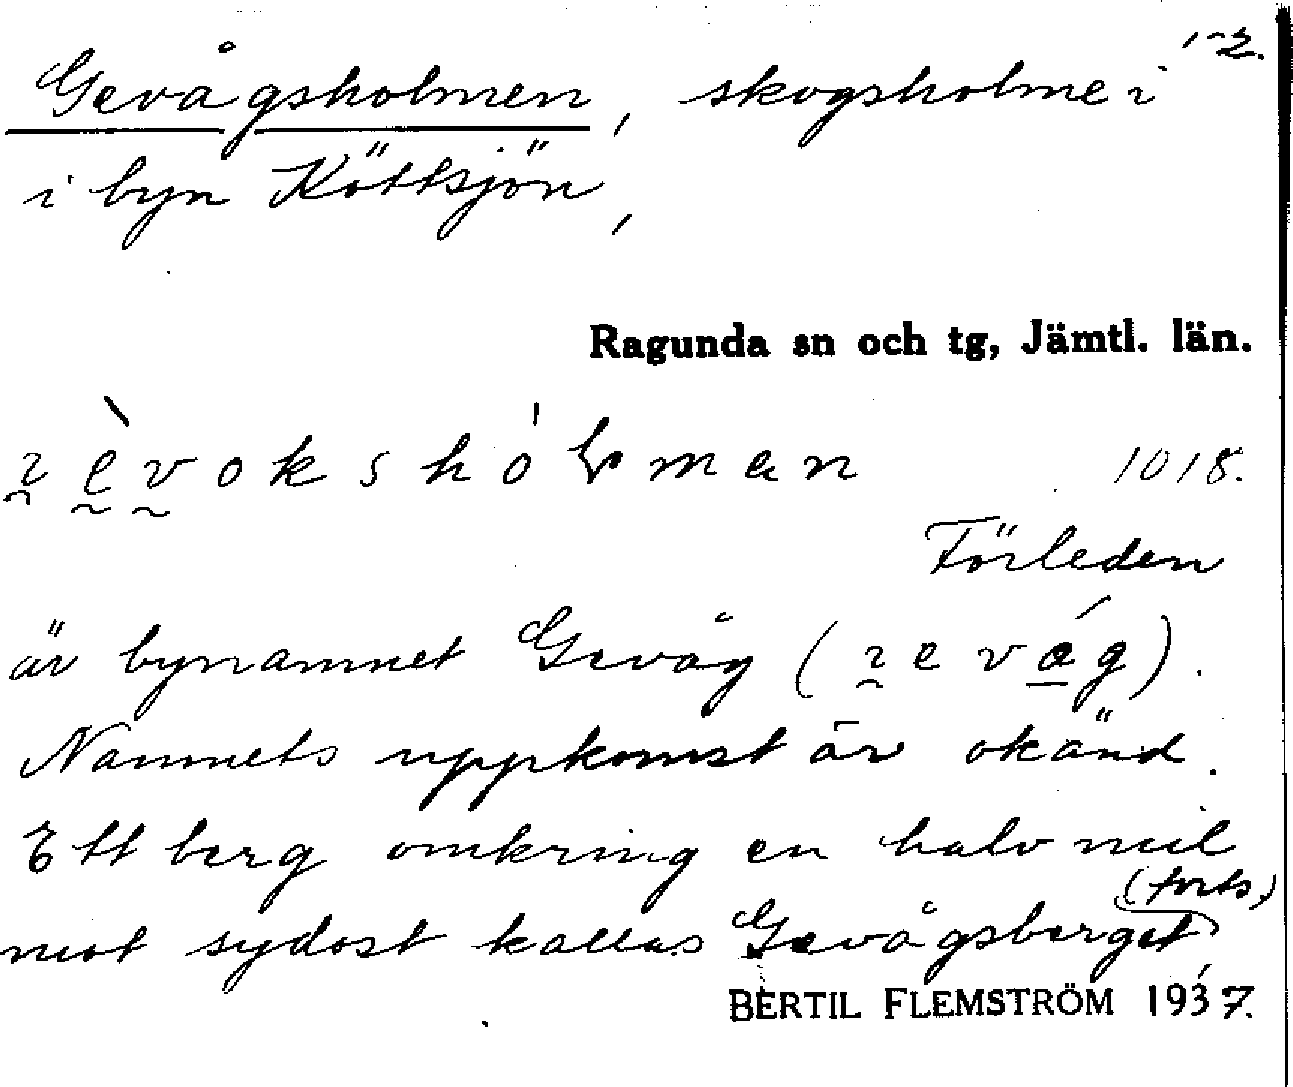 1-2.
Gevågsholmen, skogsholme i
i byn Köttsjön,
Ragunda sn och tg, Jämtl. län.
1018.
Förleden
är bynamnet Gevåg
Namnets uppkomst är okänd.
Ett berg omkring en halv mil
(forts)
mot sydost kallas Gevågsberget
BERTIL FLEMSTRÖM 1937.